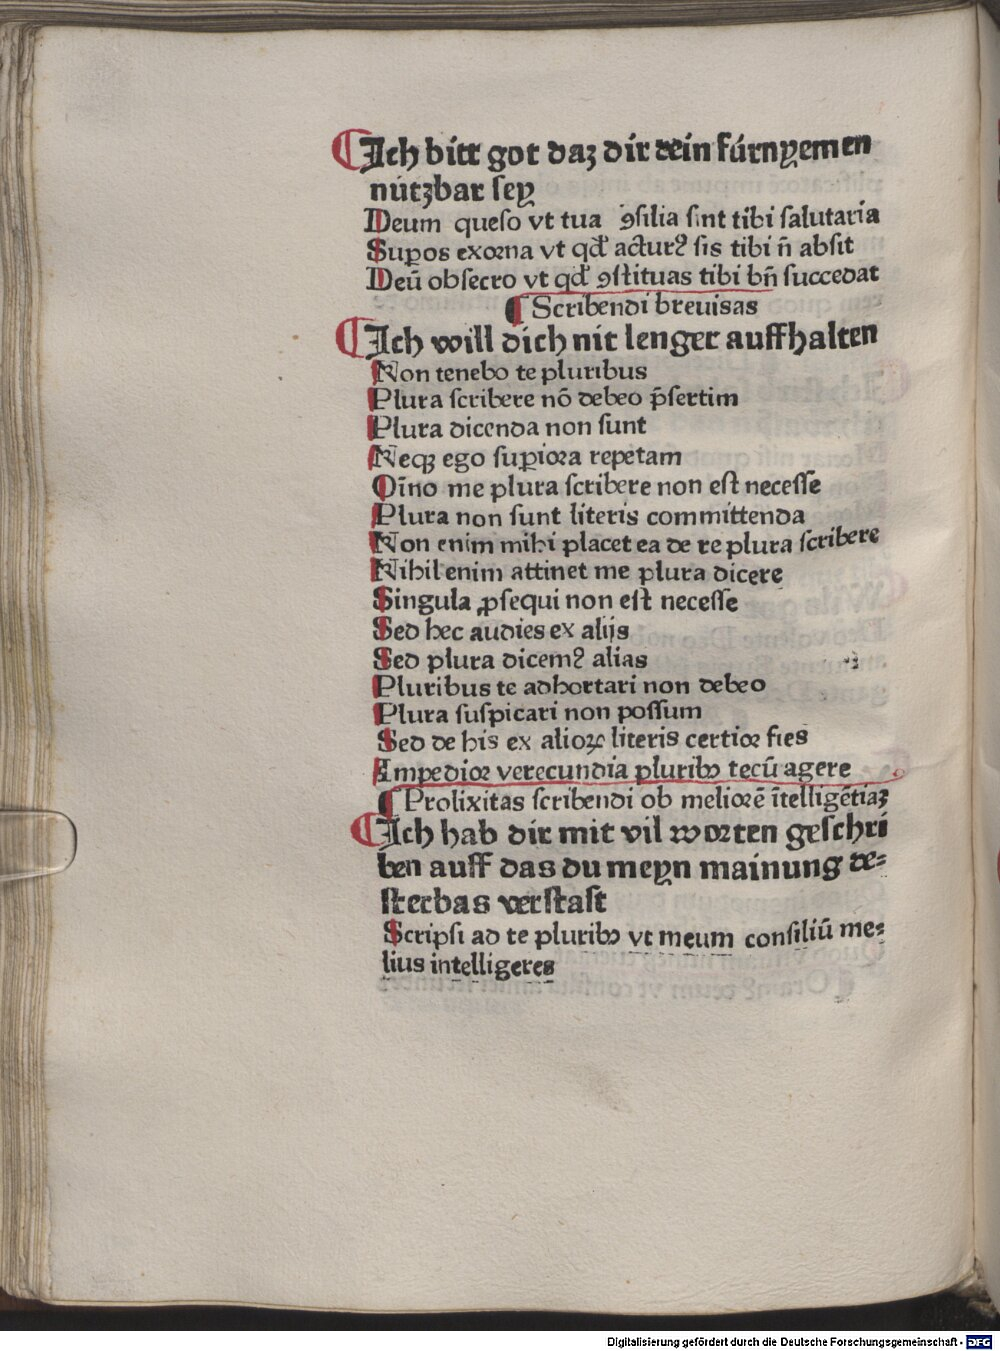 Ich bitt got daz dir dein fürnyemen
nützbar sey
Deum queso vt tua ꝯsilia sint tibi salutaria
Suꝑos exorna vt qd' actur⁹ sis tibi n̄ absit
Deū obsecro vt qd' ꝯstituas tibi bn̄ succedat
¶ Scribendi breuisas
Ich will dich nit lenger auffhalten
Non tenebo te pluribus
Plura scribere nō debeo p̄sertim
Plura dicenda non sunt
Neqꝫ ego suꝑiora repetam
Oīno me plura scribere non est necesse
Plura non sunt literis committenda
Non enim mihi placet ea de re plura scribere
Nihil enim attinet me plura dicere
Singula ꝓsequi non est necesse
Sed hec audies ex alijs
Sed plura dicem⁹ alias
Pluribus te adhortari non debeo
Plura suspicari non possum
Sed de his ex alioꝝ literis certior fies
Impedior verecundia pluribꝰ tecū agere
¶ Prolixitas scribendi ob meliorē ītelligētiaꝫ
Ich hab dir mit vil worten geschri
ben auff das du meyn mainung de⸗
sterbas verstast
Scripsi ad te pluribꝰ vt meum consiliū me⸗
lius intelligeres
Digitalisierung gefördert durch die Deutsche Forschungsgemeinschaft - DFG